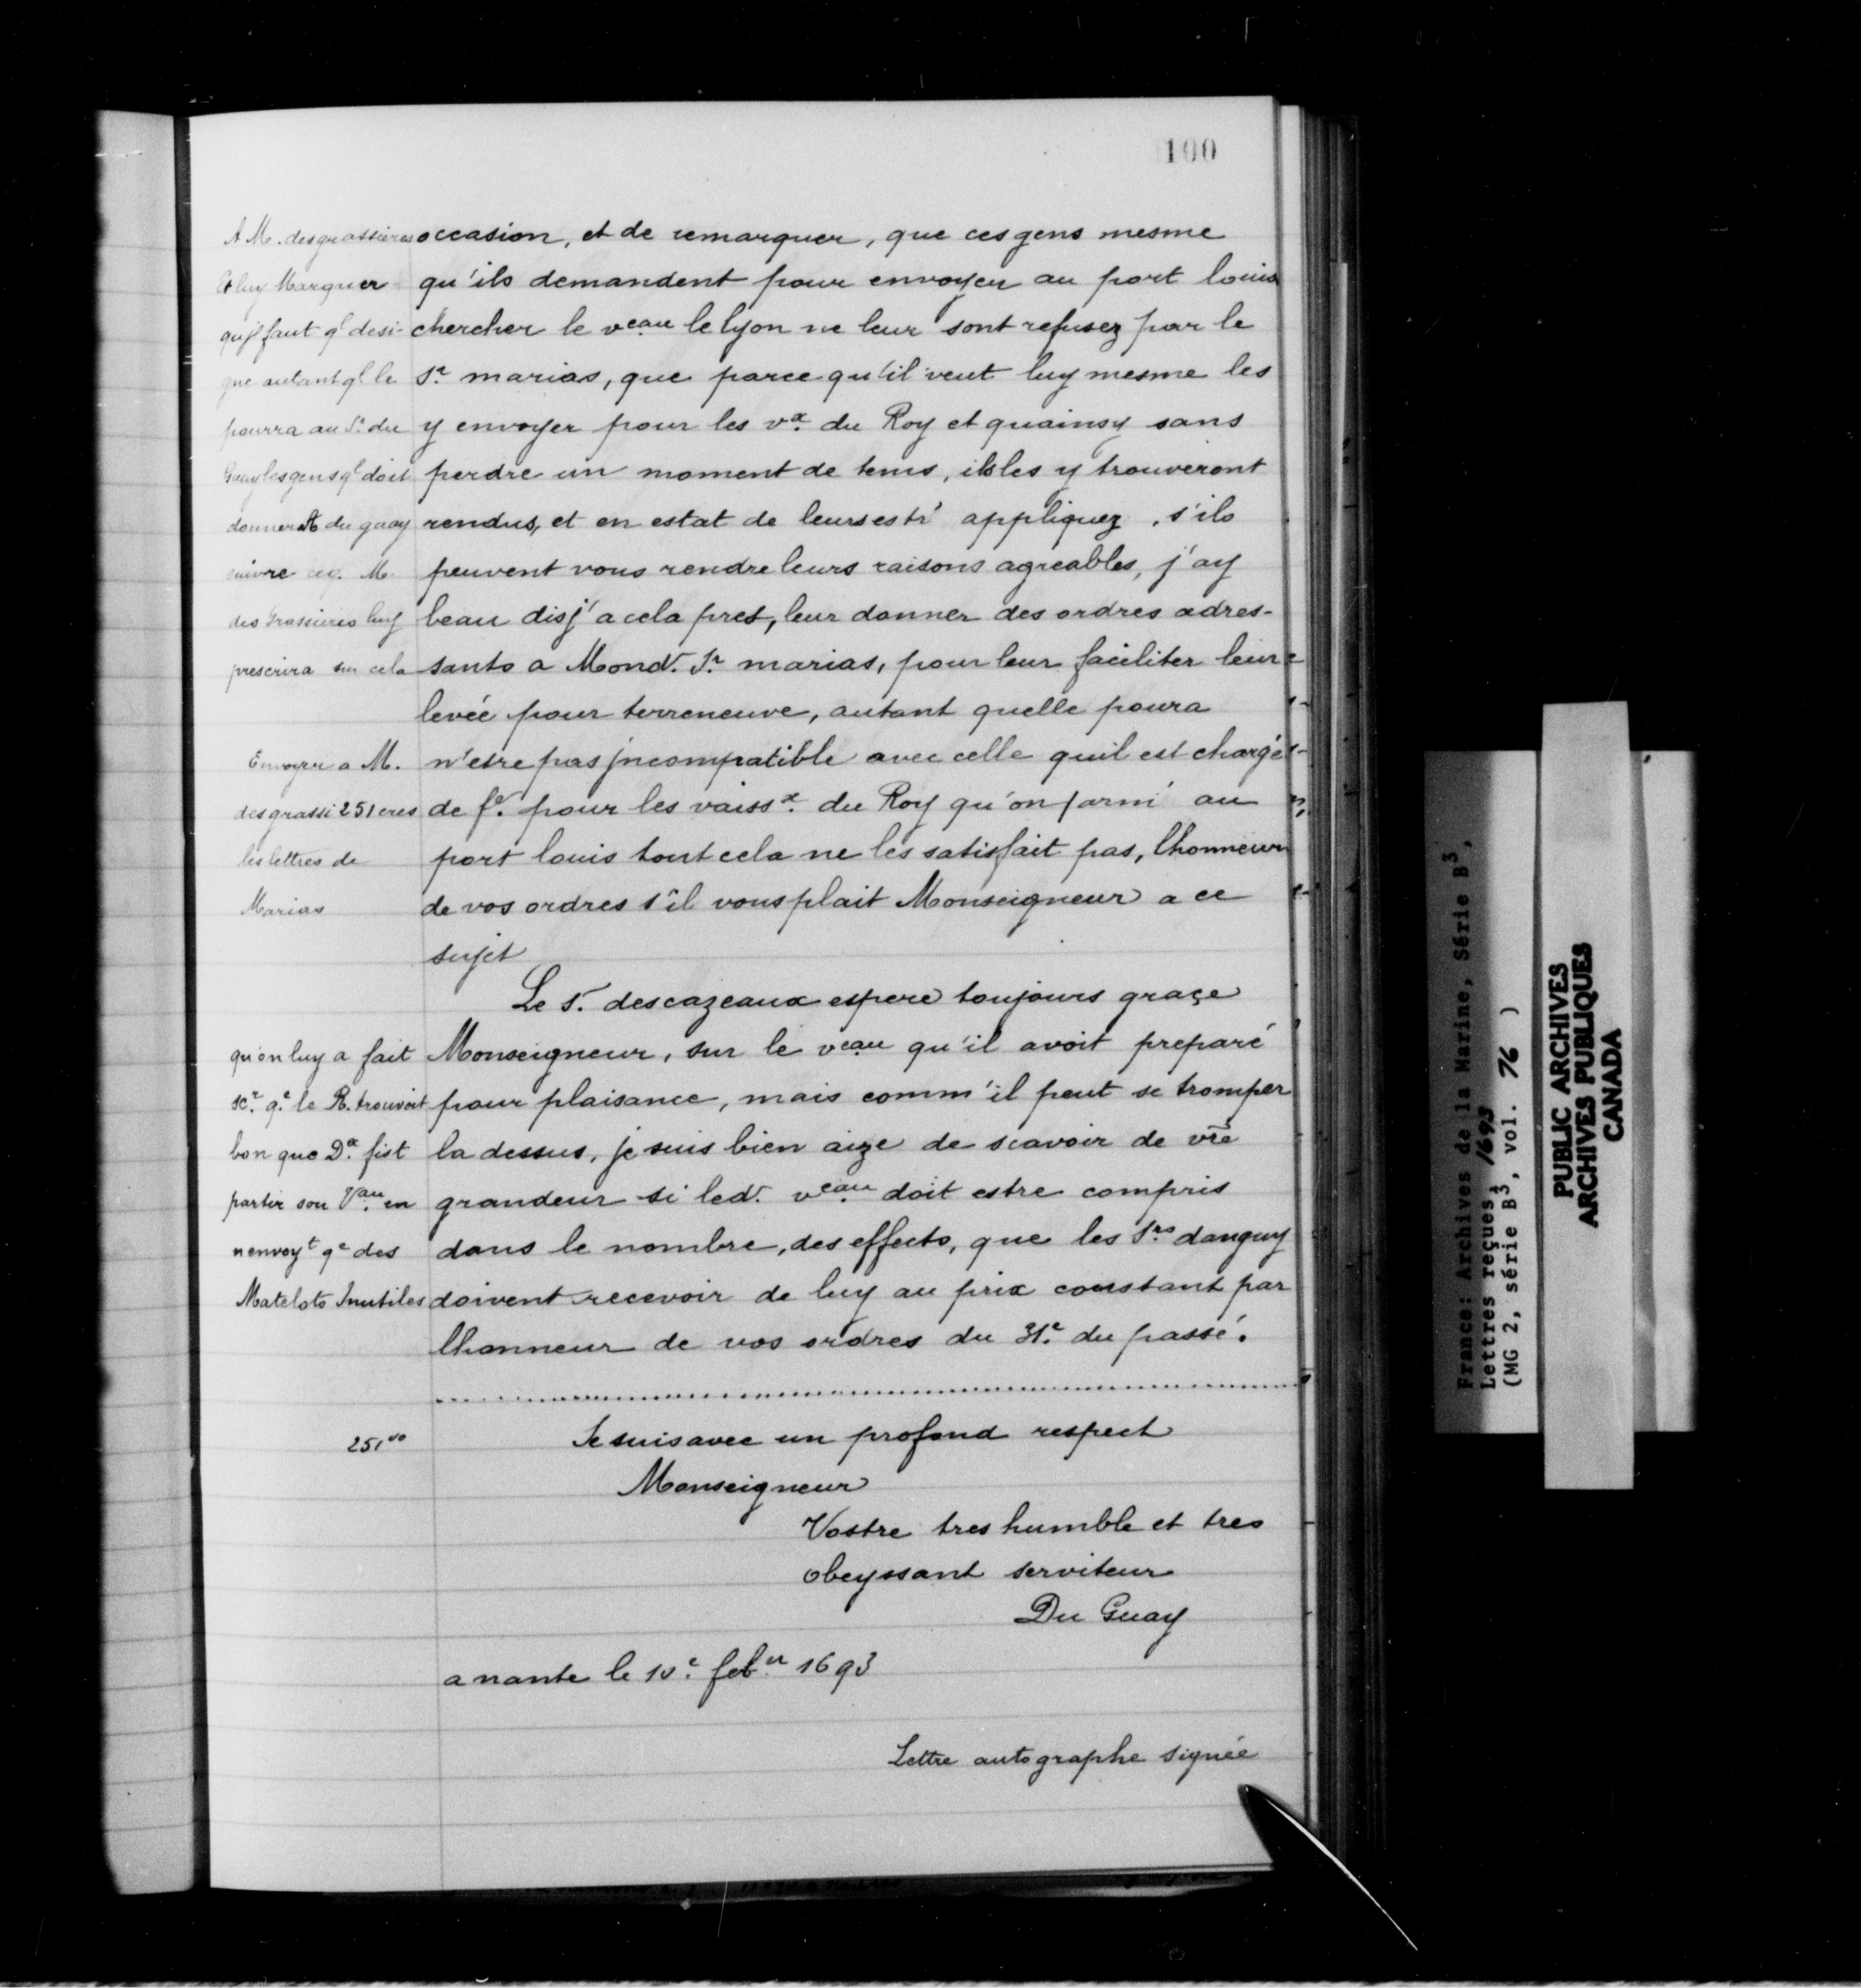 100
A M. desgrassieres
Et luy Marquer
qu'jl faut ql desi-
gne autant ql le
pourra au Sr. du
Guay les gens ql doit
donner A du guay
suivre ceq. M.
des Grassieres luy
prescrira sur cela
occasion, et de remarquer, que ces gens mesme
qu'ils demandent pour envoyer au port louis
chercher le veau le lyon ne leur sont refusez par le
Sr. marias, que parce qu'il veut luy mesme les
y envoyer pour les vx. du Roy et quainsy sans
perdre un moment de tems, ils les y trouveront
rendus, et en estat de leurs estr' appliquez, s'ils
peuvent vous rendre leurs raisons agreables, j'ay
beau disj' a cela pres, leur donner des ordres adres-
sants a Mond. Sr. marias, pour leur faciliter leur
levée pour terreneuve, autant quelle poura
Envoyer a M.
desgrassi 251 eres
les lettres de
Marias
n'estre pas jncompatible avec celle quil est chargé
de fe. pour les vaissx. du Roy qu'on jarm' au
port louis tout cela ne les satisfait pas, lhonneur
de vos ordres s'il vous plait Monseigneur a ce
sujet
Le S. descazeaux espere toujours graçe
qu'on luy a fait
scr. qe. le R. trouvoit
bon que Dx. fist
partir son Vau. en
nenvoyt qe des
Matelots Inutiles
Monseigneur, sur le veau qu'il avoit preparé
pour plaisance, mais comm'il peut se tromper
la dessus, je suis bien aize de scavoir de vre
grandeur si led. veau doit estre compris
dans le nombre, des effects, que les Srs danguy
doivent recevoir de luy au prix constant par
lhonneur de vos ordres du 31e. du passé.
251vo
Je suis avec un profond respect
Monseigneur
Vostre tres humble et tres
obeyssant serviteur
Du Guay
a nante le 10e. febr 1693
Lettre autographe signée
France: Archives de la Marine, Série B3,
Lettres reçues, 1693
(MG 2, série B3, vol. 76 )
PUBLIC ARCHIVES
ARCHIVES PUBLIQUES
CANADA